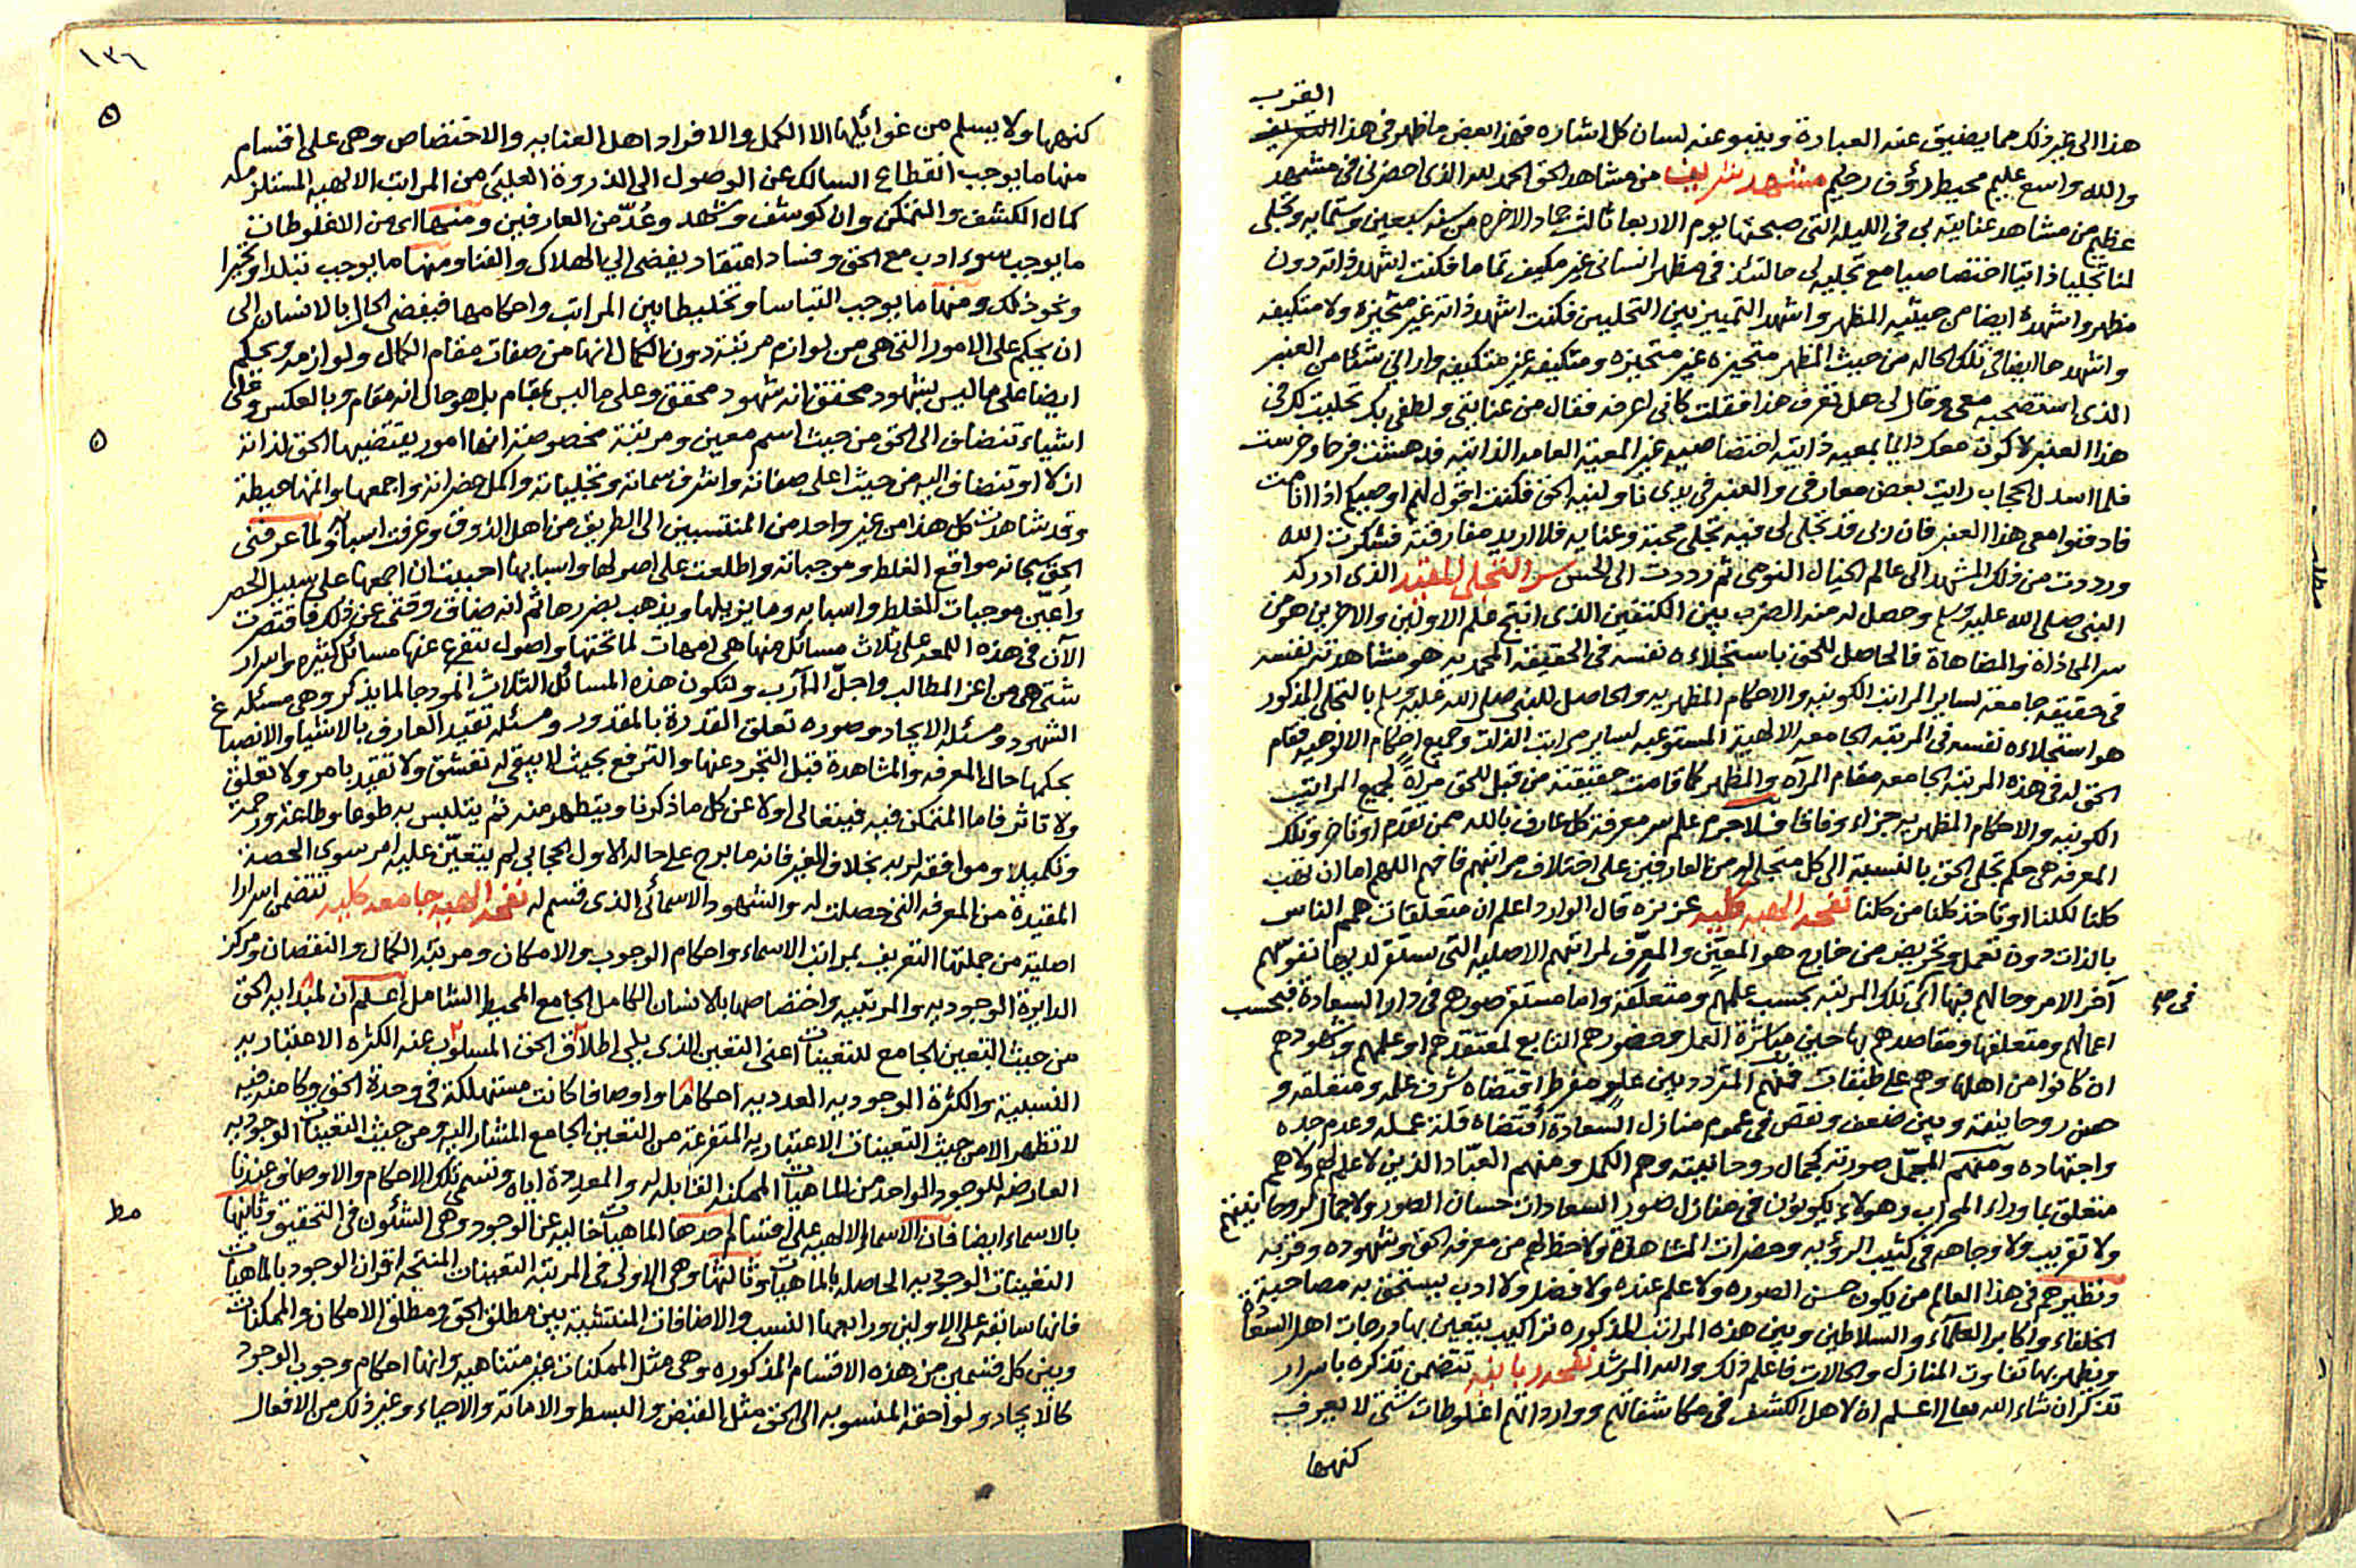 القرب
هذا الى غير ذلك مما يضيق عنه العبارة وينبو عنه لسان كل اشارة فهذا بعض ما ظهر فى هذا
والله واسع عليم محيط رؤف رحيم مشهد شريف من مشاهد الحق الحمد لله الذى احضرنى فى مشهد
عظيم من مشاهد عنايته بى فى الليلة التى صبيحتها يوم الاربعا ثالث جماد الاخره من سنه سبعين وستمايه وتجلى
لنا تجليا ذاتيا اختصاصيا مع تجليه لى حالتئذ فى مظهر انسانى غير مكيف تماما فكنت اشهد ذاته دون
مظهر واشهده ايضا من حيثيه المظهر واشهد التمييز بين التجليين فكنت اشهد ذاته غير متحيزه ولا متكيفه
واشهدها ايضا فى تلك الحاله من حيث المظهر متحيزه غير متحيزه ومتكيفه غير متكيفه وارانى شيئا من العنبر
الذى استصحبه معى وقال لى هل تعرف هذا فقلت كانى اعرفه فقال من عنايتى ولطفى بك تجليت لك فى
هذا العنبر لاكون معك دايما بمعيه ذاتيه اختصاصيه غير المعية العامه الذاتيه فدهشت فرحا وخرست
فلما اسدل الحجاب رايت بعض معارفى والعنبر فى يدى ناولنيه الحق فكنت اقول لهم اوصيكم اذا انا مت
فادفنوا معى هذا العنبر فان ربى قد تجلى لى فيه تجلى محبة وعنايه فلا اريد مفارقته فشكرت الله
ورددت من ذلك المشهد الى عالم الخيال النومى ثم رددت الى الحس سر التجلى المقيد الذى ادركه
النبى صلى الله عليه وسلم وحصل له عند الضرب بين الكتفين الذى انتج علم الاولين والاخرين هو من
سر المحاذاة والمضاهاة فالحاصل للحق باستجلائه نفسه فى الحقيقه المحمديه هو مشاهدته نفسه
فى حقيقه جامعه لساير المراتب الكونيه والاحكام المظهريه والحاصل للنبى صلى الله عليه وسلم بالتجلى المذكور
هو استجلاءه نفسه فى المرتبه الجامعه الالهية المستوعبه لساير مراتب الذات وجميع احكام الالوهيه فقام
الحق له فى هذه المرتبه الجامعه مقام المرآه والمظهر كما قامت حقيقته من قبل للحق مرآة لجميع المراتب
الكونيه والاحكام المظهريه جزاء وفاقا فلا جرم علم سر معرفة كل عارف بالله ممن تقدم او تاخر وتلك
المعرفه هى حكم تجلى الحق بالنسبة الى كل متجلى له من العارفين على اختلاف مراتبهم فافهم اللهم اما ان تهب
كلنا لكلنا او تاخذ كلنا من كلنا نفحه الهيه كليه عزيزه قال الوارد اعلم ان متعلقات همم الناس
بالذات دون تعمل وتحريض من خارج هو المعيّن والمعرّف لمراتبهم الاصليه التى يستقر لديها نفوسهم
آخر الامر وحالهم فيها اى تلك المرتبه بحسب علمهم ومتعلقه واما مستقر صورهم فى دار السعادة فبحسب
فى ص
اعمالهم ومتعلقها ومقاصدهم بها حين مباشرة العمل وحضورهم التابع لمعتقدهم او علمهم وشهودهم
ان كانوا من اهلها وهم على طبقات فمنهم المتردد بين علو مفرط اقتضاه شرف علمه ومتعلقه و
حسن روحانيته وبين ضعف ونقص فى عموم منازل السعادة اقتضاه قلة عمله وعدم جده
واجتهاده ومنهم المجمّل صورته كجمال روحانيته وهم الكمل ومنهم العبّاد الذين لا علم لهم ولا هم
متعلق بما وراء المحراب وهولاء يكونون فى منازل صور السعادات حسان الصور ولا جمال لروحانيتهم
ولا تقريب ولا وجاهه فى كثيب الرؤيه وحضرات المشاهدة ولا حظ لهم من معرفه الحق وشهوده وقربه
ونظيرهم فى هذا العالم من يكون حسن الصوره ولا علم عنده ولا فضل ولا ادب يستحق به مصاحبة
الخلفاء واكابر العلماء والسلاطين وبين هذه المراتب المذكوره تراكيب يتعين بها درجات اهل السعادة
ويظهر بها تفاوت المنازل والحالات فاعلم ذلك والله المرشد نفحه ربانيه تتضمن تذكره باسرار
تذكر ان شاء الله تعالى اعلم ان لاهل الكشف فى مكاشفاتهم ووارداتهم اغلوطات شتى لا يعرف
كنهها
مطلب
١٣٦
كنهها ولا يسلم من غوائلها الا الكمل والافراد اهل العنايه والاختصاص وهى على اقسام
منها ما يوجب انقطاع السالك عن الوصول الى الذروة العليى من المراتب الالهيه المستلزمه
كمال الكشف والتمكن وان كوشف وشهد وعُدّ من العارفين ومنها اى من الاغلوطات
ما يوجب سوء ادب مع الحق وفساد اعتقاد يفضى الى الهلاك والفنا ومنها ما يوجب تبلدا وتحيرا
ونحو ذلك ومنها ما يوجب التباسا وتخليطا بين المراتب واحكامها فيفضى الحال بالانسان الى
ان يحكم على الامور التى هى من لوازم مرتبة دون الكمال انها من صفات مقام الكمال ولوازمه ويحكم
ايضا على ما ليس بشهود محقق انه شهود محقق وعلى ما ليس بمقام بل هو حال انه مقام وبالعكس وعلى
اشياء تنضاف الى الحق من حيث اسم معين ومرتبة مخصوصة انها امور يقتضيها الحق لذاته
ازلا او تنضاف اليه من حيث اعلى صفاته واشرف سماته وتجلياته واكمل حضراته واجمعها واتمها حيطة
وقد شاهدت كل هذا من غير واحد من المنتسبين الى الطريق من اهل الذوق وعرفت اسبابه ولما عرفنى
الحق سبحانه مواقع الغلط وموجباته واطلعت على اصولها واسبابها احببت ان اجمعها على سبيل الحصر
واُعيّن موجبات الغلط واسبابه وما يزيلها ويذهب بضررها ثم انه ضاق وقتى عن ذلك فاقتصرت
الآن فى هذه اللمعه على ثلاث مسائل منها هى امهات لما تحتها واصول يتفرع عنها مسائل كثيره واسرار
شتى هى من اعز المطالب واجلّ المآرب ولتكون هذه المسائل الثلاث انموذجا لما يذكر وهى مسئله
الشهود ومسئله الايجاد وصوره تعلق القدرة بالمقدور ومسئله تقيد العارف بالاشياء والانصباغ
بحكمها حال المعرفه والمشاهدة قبل التجرد عنها والترفع بحيث لا يبقى له تعشق ولا تقيد بامر ولا تعلق
ولا تاثر فاما المتمكن فيه فيتعالى اولا عن كل ما ذكرنا ويتطهر منه ثم يتلبس به طوعا وطاعة ورحمة
وتكميلا وموافقه لربه بخلاف الغير فانه ما برح على حاله الاول الحجابى لم يتعيّن عليه امر سوى الحصة
المقيدة من المعرفه التى حصلت له والشهود الاسمائى الذى قسم له نفحه الهيه جامعه كليه تتضمن اسرارا
اصلية من جملتها التعريف بمراتب الاسماء واحكام الوجوب والامكان ومرتبه الكمال والنقصان ومركز
الدايرة الوجوديه والمرتبيه واختصاصها بالانسان الكامل الجامع المحيط الشامل اعلم ان لمبدايه الحق
من حيث التعين الجامع للتعينات اعنى التعين الذى يلى اطلاق الحق المسلوب عنه الكثره الاعتباريه
النسبية والكثرة الوجوديه العدديه احكاما واوصافا كانت مستهلكة فى وحدة الحق وكامنه فيه
لا تظهر الا من حيث التعينات الاعتباريه المتفرعة من التعين الجامع المشار اليه ومن حيث التعينات الوجوديه
العارضه للوجود الواحد من الماهيات الممكنه القابله له والمعددة اياه وتسمى تلك الاحكام والاوصاف عندنا
بالاسماء ايضا فان الاسماء الالهيه على اقسام احدها الماهيات خاليه عن الوجود وهى الشئون فى التحقيق وثانيها
مط
التعينات الوجوديه الحاصله بالماهيات وثالثها وهى الاولى فى المرتبه التعينات المنتجه اقتران الوجود بالماهيات
فانها سابقه على الاولين ورابعها النسب والاضافات المنتشئية بين مطلق الحق ومطلق الامكان والممكنات
وبين كل قسمين من هذه الاقسام المذكوره وهى مثل الممكنات غير متناهيه وانها احكام وجوب الوجود
كالايجاد ولواحقه المنسوبه الى الحق مثل القبض والبسط والاماتة والاحياء وغير ذلك من الافعال